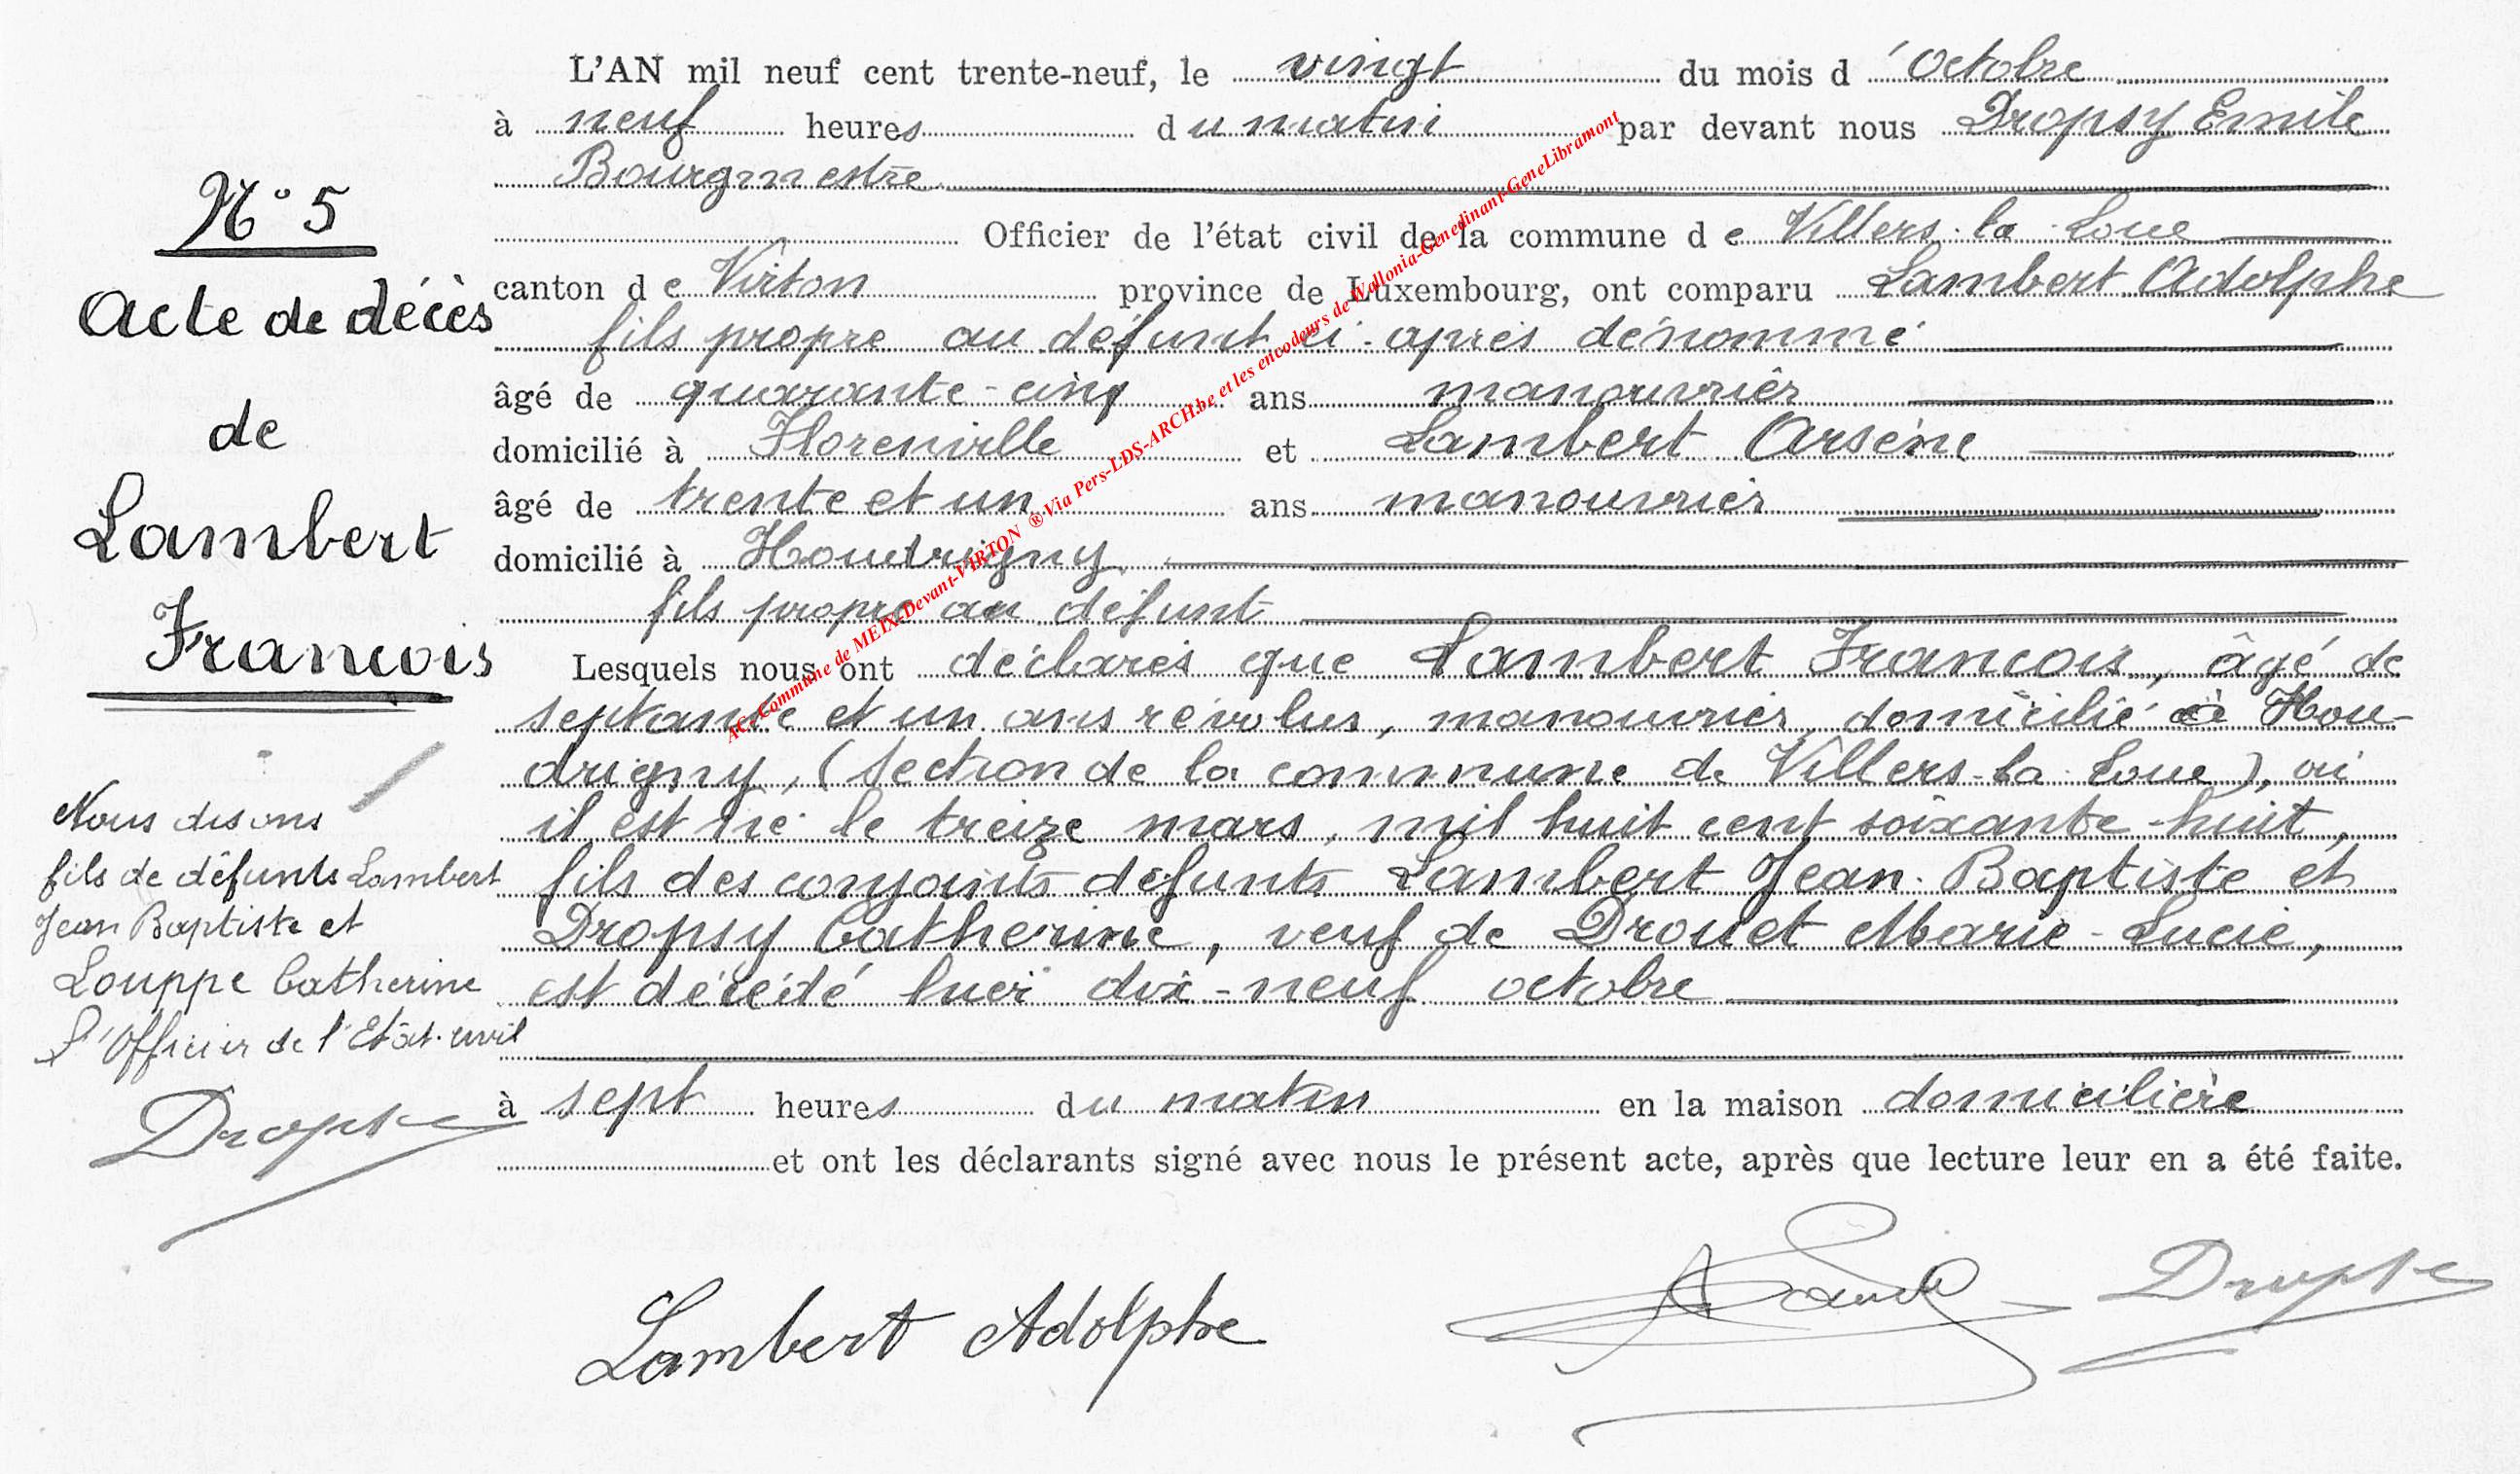 N° 5
Acte de décès
de
Lambert
Francois
Nous disons
fils de défunts Lambert
Jean Baptiste et
Louppe Catherine
L'Officier de l'Etat-civil
Dropsy
L'AN mil neuf cent trente-neuf, le vingt du mois d'Octobre
à neuf heures du matin par devant nous Dropsy Emile
Bourgmestre
Officier de l'état civil de la commune de Villers-la-Loue
canton de Virton province de Luxembourg, ont comparu Lambert Adolphe
fils propre au défunt ci-après dénommé
âgé de quarante-cinq ans manouvrier
domicilié à Florenville et Lambert Arsène
âgé de trente et un ans manouvrier
domicilié à Houdrigny
fils propre au défunt
Lesquels nous ont déclarés que Lambert Francois, âgé de
septante et un ans révolus, manouvrier, domicilié à Hou-
drigny, (section de la commune de Villers-la-Loue), où
il est né le treize mars, mil huit cent soixante-huit,
fils des conjoints défunts Lambert Jean-Baptiste et
Dropsy Catherine, veuf de Drouet Marie-Lucie,
est décédé hier dix-neuf octobre
à sept heures du matin en la maison domicilière
et ont les déclarants signé avec nous le présent acte, après que lecture leur en a été faite.
Lambert Adolphe
Dropsy
AC-Commune de MEIX-Devant-VIRTON ® Via Pers-LDS-ARCH.be et les encodeurs de Wallonia-Genedinant-GeneLibramont